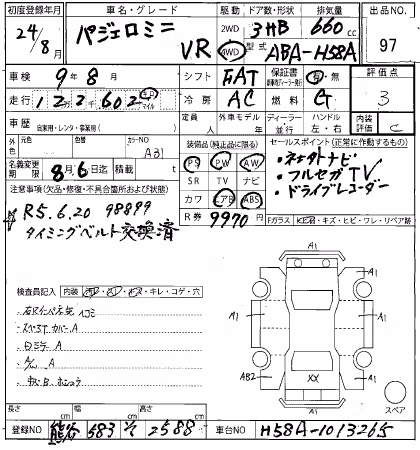 初度登録年月 車名・グレード 駆動 ドア数・形状 排気量 出品NO.
24/8月 パジェロミニ VR 2WD 4WD 3HB 660cc 97
型式 ABA-H58A
車検 9年8月 シフト FAT 保証書 有・無 評価点
走行 122602 キロ マイル 冷房 AC 燃料 G 3
車歴 自家用・レンタ・事業用( ) 定員 人 外車モデル 年 ディーラー 並行 ハンドル 左・右 内装評価 C
外色 元色 カラーNO A31 装備品(純正品に限る) セールスポイント(正常に作動するもの)
名義変更期限 8月6日迄 積載 t PS PW AW ・ネオトナビ
注意事項(欠品・修復・不具合箇所および状態) SR TV ナビ ・フルセグTV
R5.6.20 98899 カワ エアB ABS ・ドライブレコーダー
タイミングベルト交換済 R券 9970円
Fガラス キズ・ヒビ・ワレ・リペア跡
A1
検査員記入 内装 キレ・コゲ・穴
A1 A1
A1 A1
A
A
AB2 XX A1
A1 スペア
長さ cm 幅 cm 高さ cm
登録NO 熊谷 583 2588 車台NO H58A-1013265